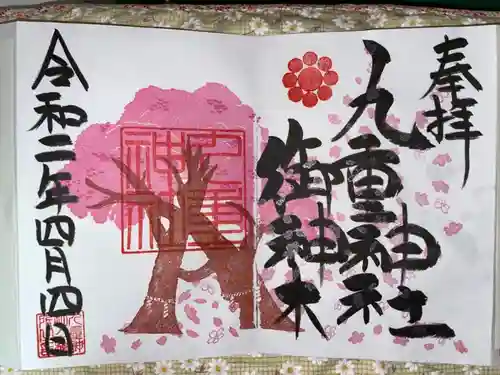 奉拝
九重神社
御神木
令和二年四月四日
九重神社